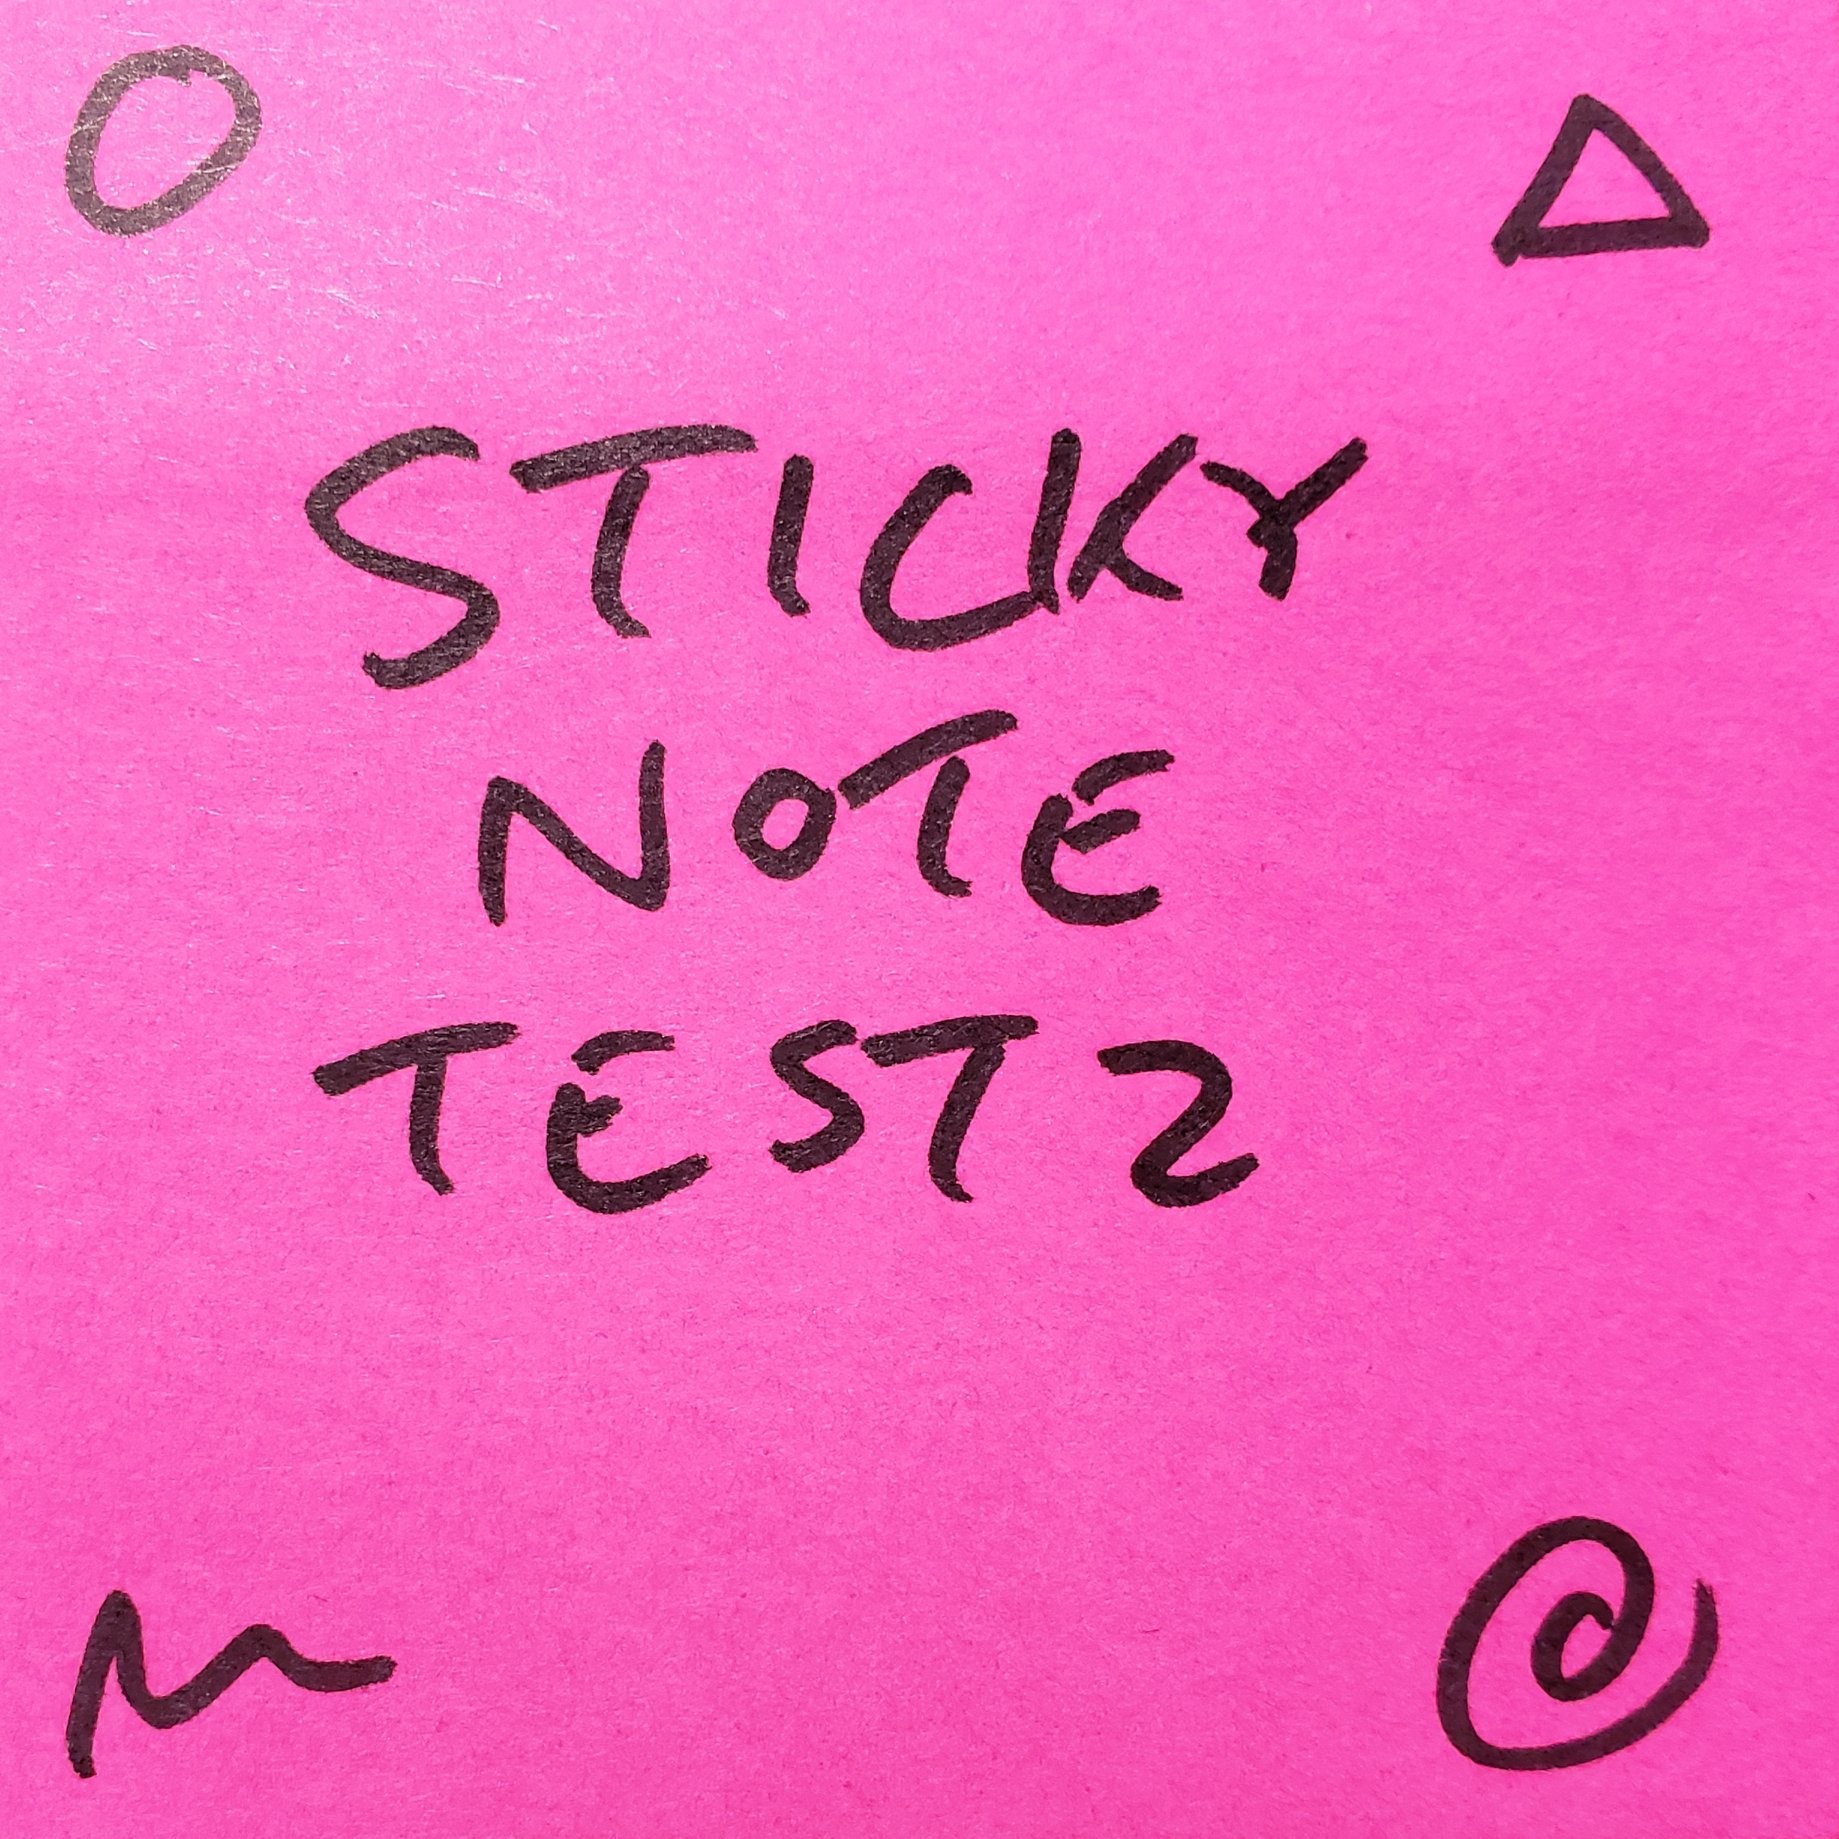 STICKY
NOTE
TEST 2